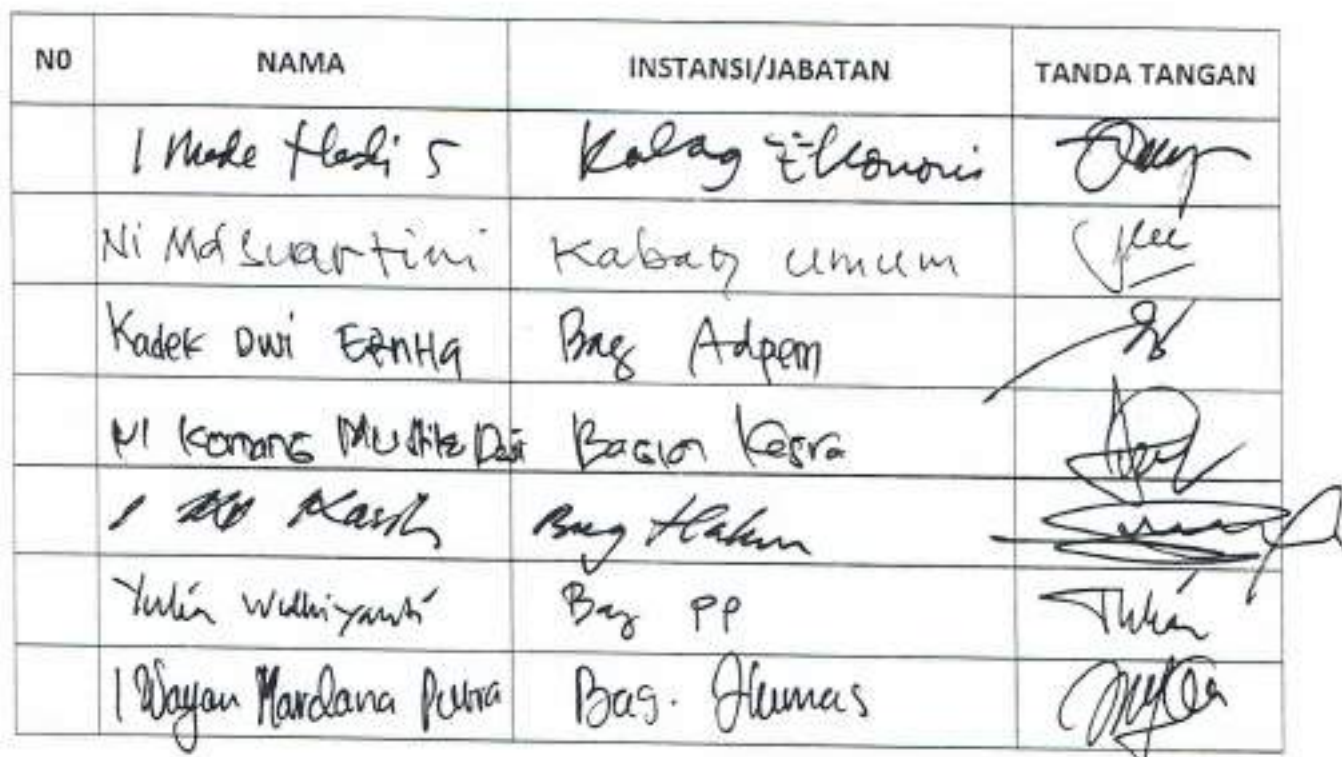 NO NAMA INSTANSI/JABATAN TANDA TANGAN
I Made Hadi S Kabag Ekonomi
Ni Md Suartini Kabag Umum
Kadek Dwi Bag Adpem
NI Komang Bagian Kesra
I Bag Hukum
Yulia Widhiyanti Bag PP
I Wayan Mardana Putra Bag. Humas